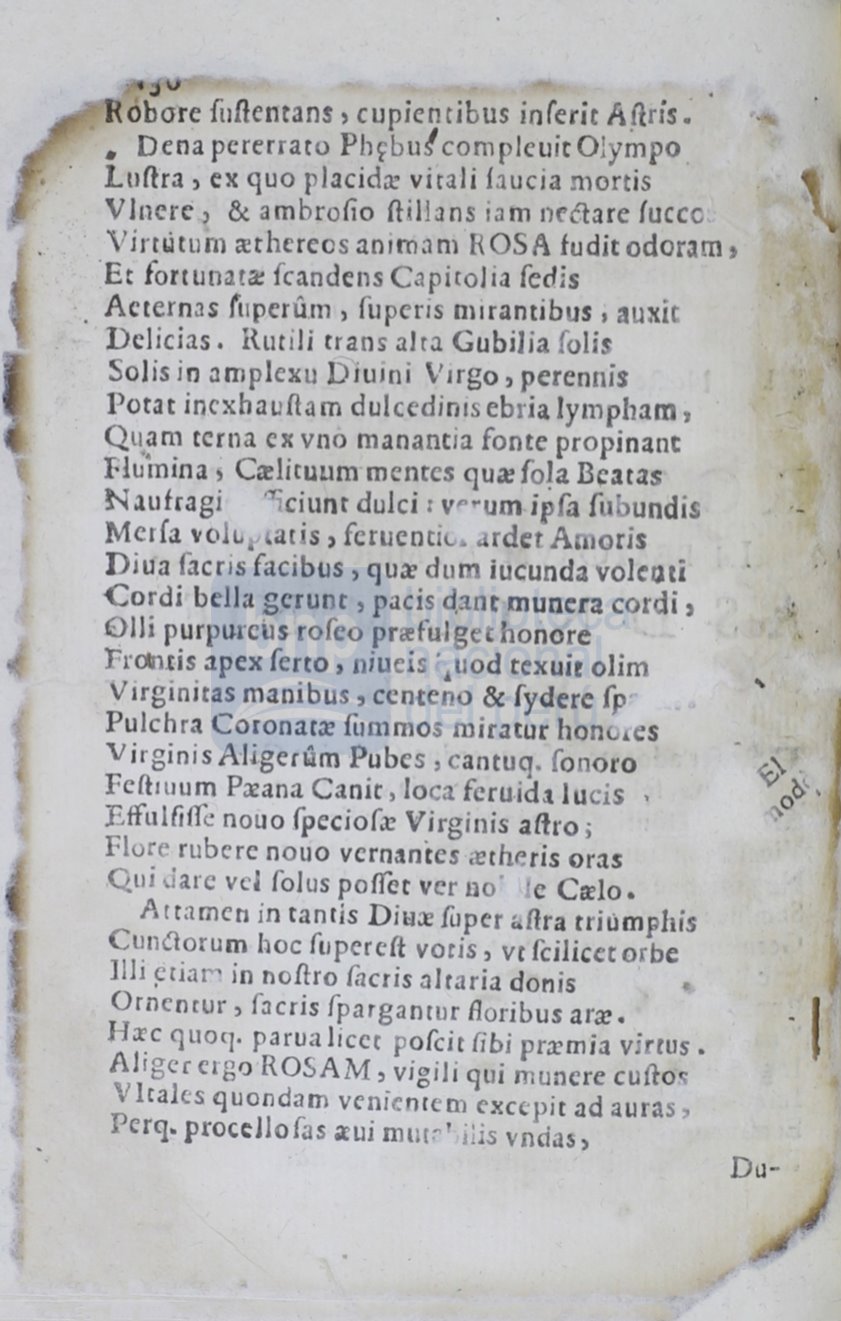 Robore ſuſtentans, cupientibus inſerit Aſtris.
Dena pererrato Phębus compleuit Olympo
Luſtra, ex quo placidæ vitali ſaucia mortis
Vlnere, & ambroſio ſtillans iam nectare ſucco
Virtutum æthereos animam ROSA fudit odoram,
Et fortunatæ ſcandens Capitolia ſedis
Aeternas ſuperûm, ſuperis mirantibus, auxit
Delicias. Rutili trans alta Gubilia ſolis
Solis in amplexu Diuini Virgo, perennis
Potat inexhauſtam dulcedinis ebria lympham,
Quam terna ex vno manantia fonte propinant
Flumina, Cælituum mentes quæ ſola Beatas
Naufragi dulci: verum ipſa ſubundis
Merſa voluptatis, ardet Amoris
Diua ſacris facibus, quæ dum iucunda volenti
Cordi bella gerunt, pacis dant munera cordi,
Olli purpureus roſeo præfulget honore
Frontis apex ſerto, niueis quod texuit olim
Virginitas manibus, centeno & ſydere
Pulchra Coronatæ ſummos miratur honores
Virginis Aligerûm Pubes, cantuq. ſonoro
Feſtiuum Pæana Canit, loca feruida lucis
Effulſiſſe nouo ſpecioſæ Virginis aſtro;
Flore rubere nouo vernantes ætheris oras
Qui dare vel ſolus poſſet ver Cælo.
Attamen in tantis Diuæ ſuper aſtra triumphis
Cunctorum hoc ſupereſt votis, vt ſcilicet orbe
Illi etiam in noſtro ſacris altaria donis
Ornentur, ſacris ſpargantur floribus aræ.
Hæc quoq. parua licet poſcit ſibi præmia virtus.
Aliger ergo ROSAM, vigili qui munere cuſtos
Vitales quondam venientem excepit ad auras,
Perq. procelloſas æui mutabilis vndas,
Du-
El
biblioteca
nacional